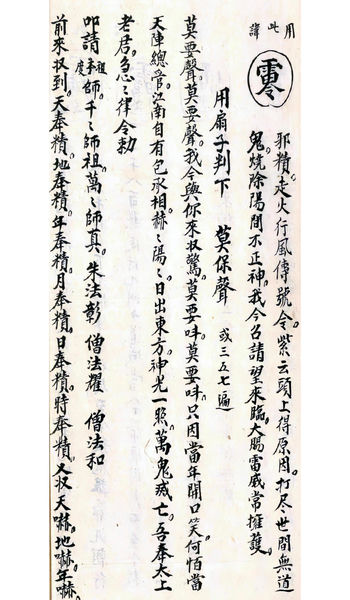 用此諱
邪精走火行風傳號令。紫云頭上得原因。打尽世間無道
鬼。燒除陽間不正神。我今召請望來臨。大腸雷威常擁護。
用扇子判下 莫保聲 或三五七遍
莫要聲。莫要聲。我今與你來収驚。莫要哇。莫要哇。只因當年開口笑。何怕當
天陣總管。江南自有包承相。赫〻陽〻。日出東方。神光一照。萬鬼滅亡。吾奉太上
老君。急〻律令勅
叩請祖本度師。千〻師祖。萬〻師真。朱法彰 僧法耀 僧法和
前來収到。天奉精。地奉精。年奉精。月奉精。日奉精。時奉精。又収天嚇。地嚇。年嚇。